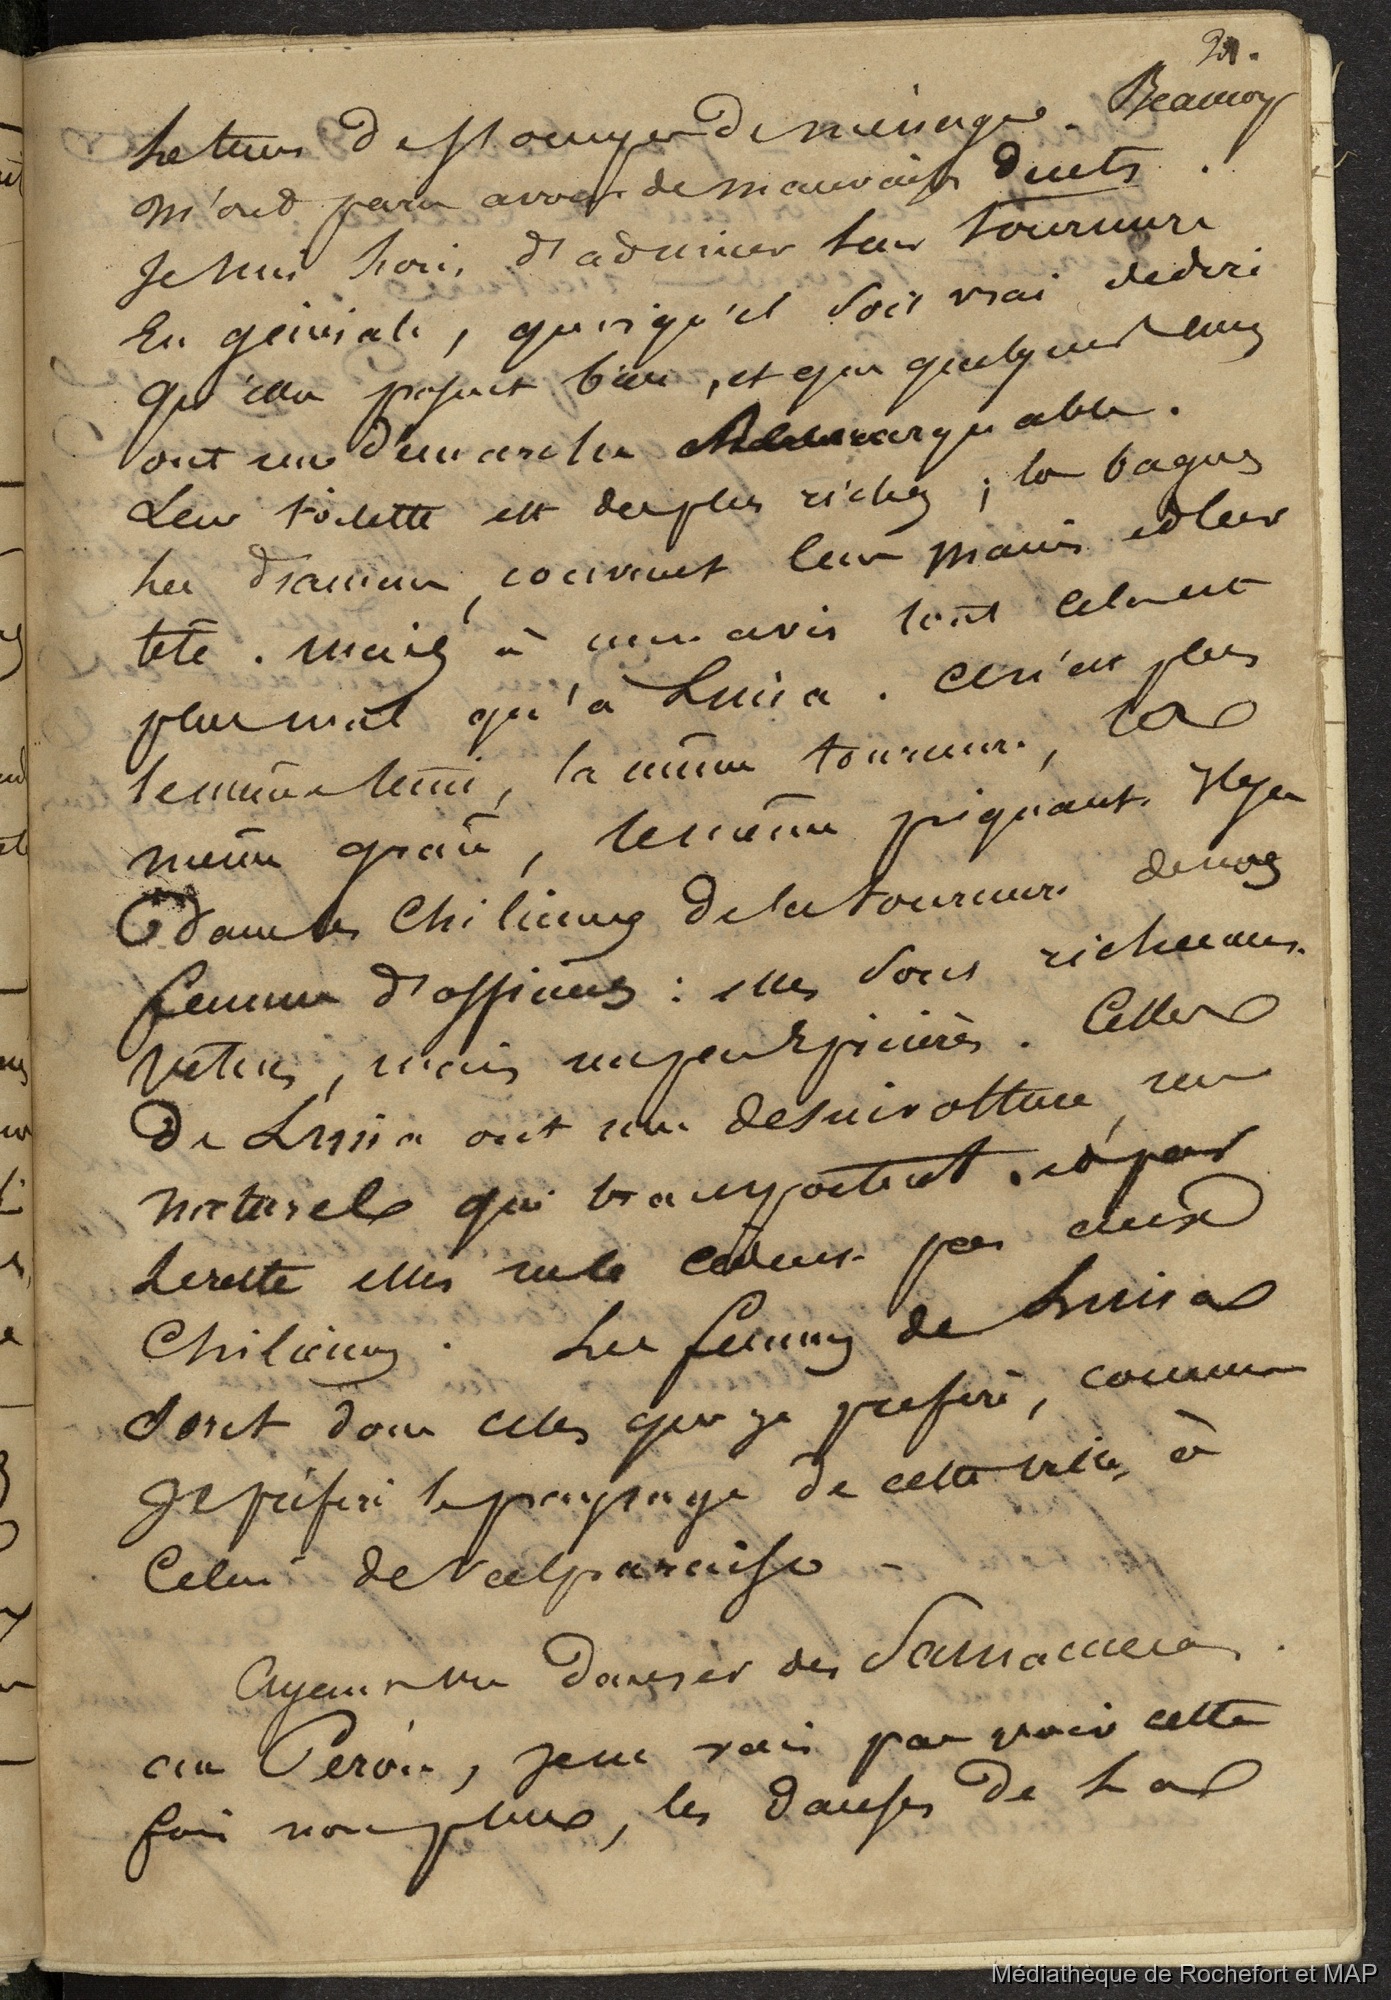 21.
de menage. Beaucoup
m'ont paru avoir de mauvaises dents.
Je suis loin d'admirer leur tournure
En général, quoiqu'il soit vrai de dire
qu'elles posent bien, et que quelques unes
ont une démarche remarquable.
Leur toilette est des plus riches ; les bagues
les diamans, couvrent leurs mains et leur
tête. Mais à mon avis tout cela est
plus mal qu'à Lima. Ce n'est plus
le même teint, la même tournure, la
même grâce, le même piquant. Il y a
dans les Chiliennes de la tournure de nos
femmes d'officiers : elles sont richement
vetues, mais un peu Epicières. Celles
De Lima ont une desinvolture, un
naturel qui transportent, et pour
le reste elles ne le cèdent pas aux
Chiliennes. Les femmes de Lima
Sont donc celles que je prefère, comme
Je préfère le paysage de cette ville, à
Celui de Valparaiso -
Ayant vu danser des Samacuecas
au Pérou, je ne vais pas voir cette
fois non plus, les danses de La